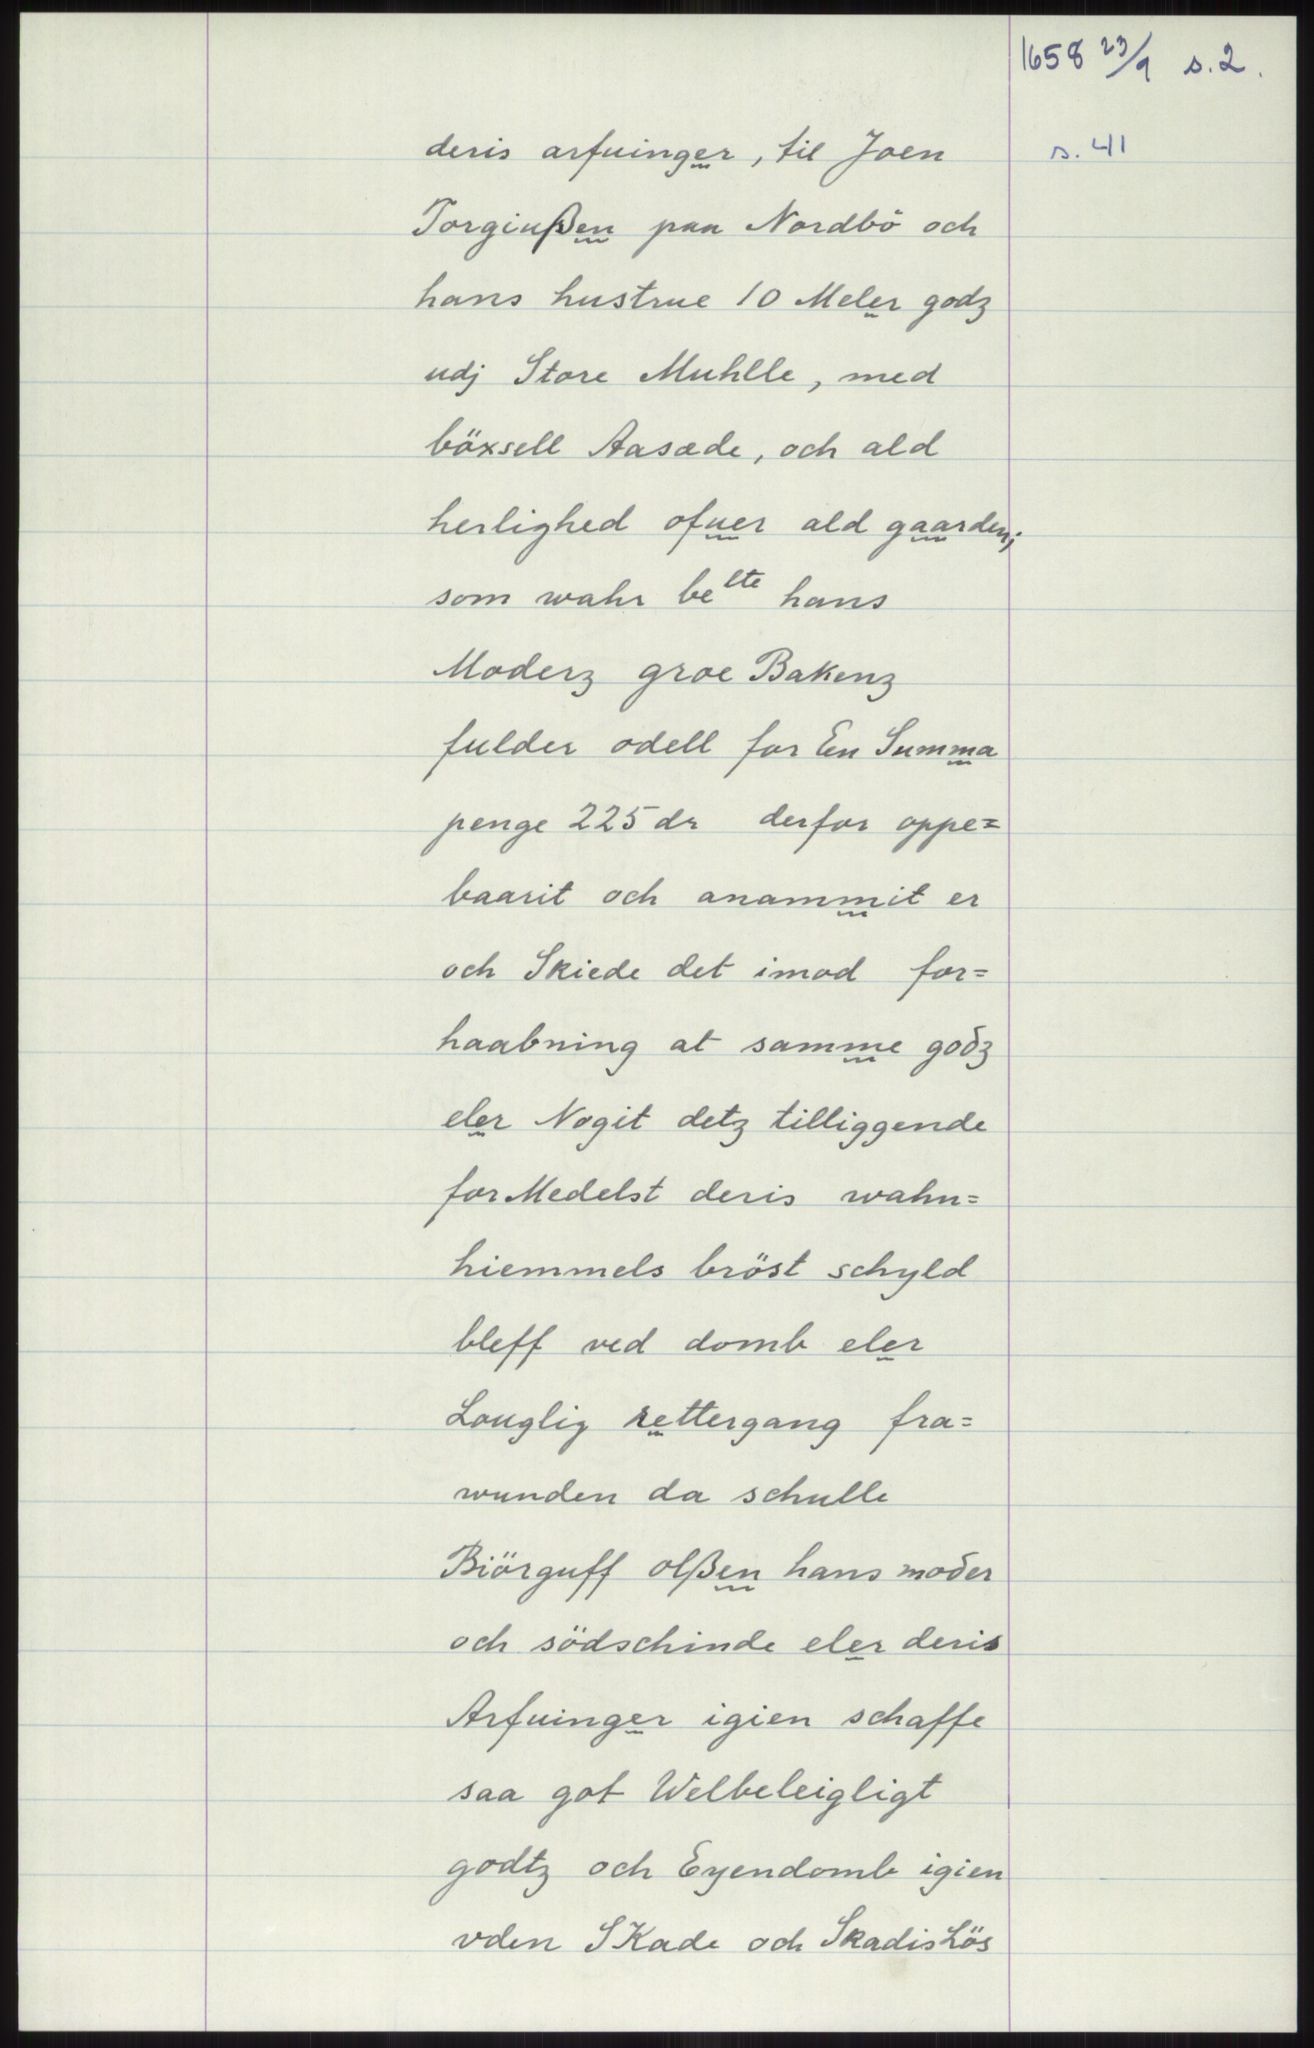 1658 23/9 s. 2.
s. 41
deris arfuinger, til Joen
Torgiußen paa Nordbö och
hans hustrue 10 Meler godz
udj Store Muhlle, med
böxsell Aasæde, och ald
herlighed ofuer ald gaarden;
som wahr belte hans
Moderz groe Bakenz
fulder odell for En Summa
penge 225 dr derfor oppe=
baarit och anammit er
och Skiede det imod for=
haabning at samme godz
eler Nogit detz tilliggende
for Medelst deris wahn=
hiemmels bröst schyld
bleff ved domb eler
Louglig rettergang fra=
wunden da schulle
Biörguff olßen hans moder
och södschinde eler deris
Arfuinger igien schaffe
saa got Welbeleigligt
godtz och Eyendomb igien
vden SKade och Skadislös